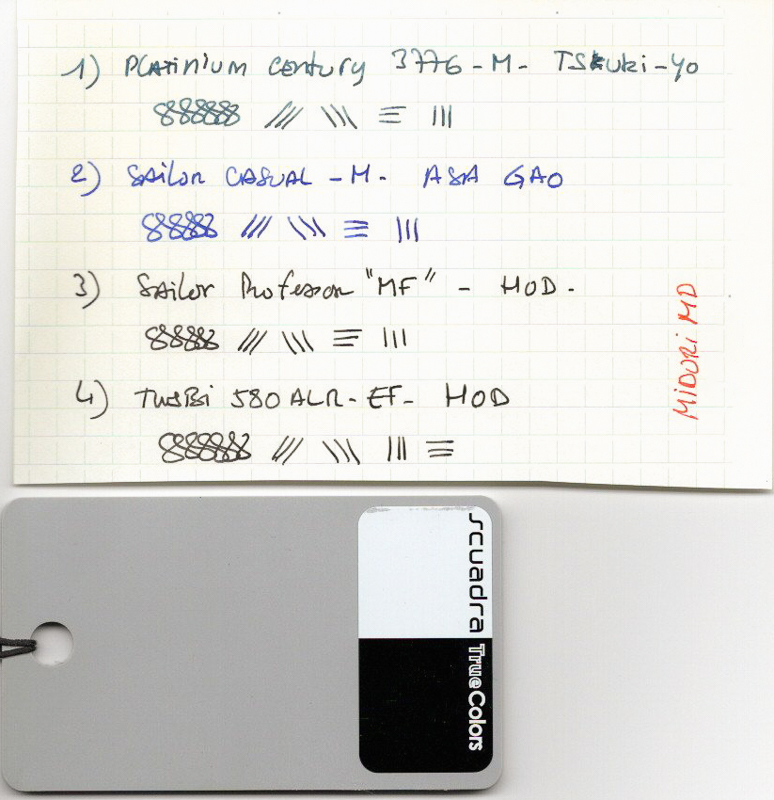 1) PLATINIUM CENTURY 3776 - M - TSKUKI-YO
2) SAILOR CASUAL - M - ASA GAO
3) SAILOR Professor "MF" - HOD.
4) TWSBI 580 ALR - EF - HOD
MIDORI MD
scuadra TrueColors